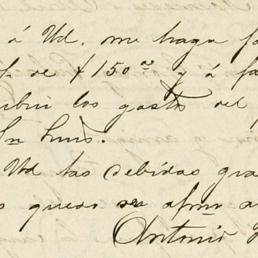 á Ud. me haga fa
de $150.00 y á fa
cubrir los gastos del
Sn Luis.
Ud las debidas gra
quedo su afmo a
Antonio